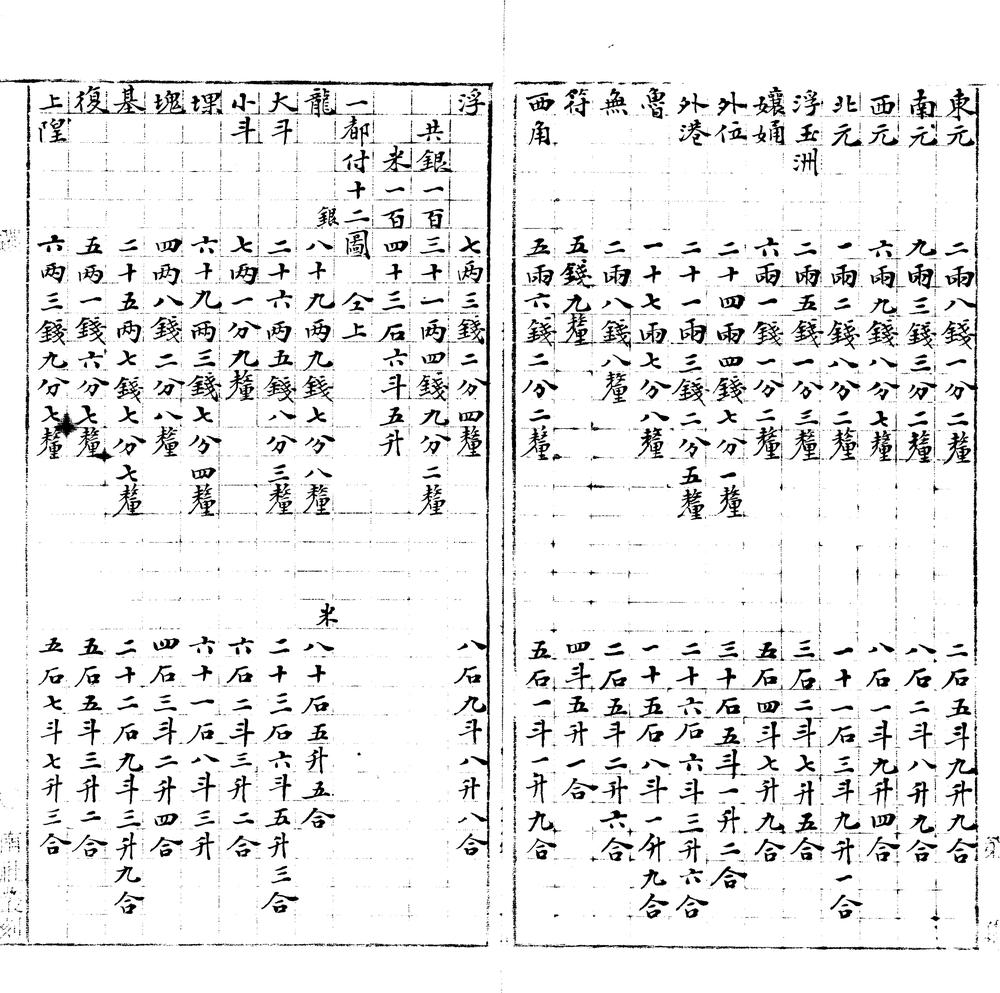 東元 二兩八錢一分二釐 二石五斗九升九合
南元 九兩三錢三分二釐 八石二斗八升九合
西元 六兩九錢八分七釐 八石一斗九升四合
北元 一兩二錢八分二釐 一十一石三斗九升一合
浮玉洲 二兩五錢一分三釐 三石二斗七升五合
孃𡜵 六兩一錢一分二釐 五石四斗七升九合
外位 二十四兩四錢七分一釐 三十石五斗一升二合
外港 二十一兩三錢二分五釐 二十六石六斗三升六合
魯 一十七兩七分八釐 一十五石八斗一升九合
無 二兩八錢八釐 二石五斗二升六合
符 五錢九釐 四斗五升一合
西角 五兩六錢二分二釐 五石一斗一升九合
浮 七两三錢二分四釐 八石九斗八升八合
共銀一百三十一两四錢九分二釐
米一百四十三石六斗五升
一都付十二圖 仝上
龍 銀八十九两九錢七分八釐 米八十石五升五合
大斗 二十六两五錢八分三釐 二十三石六斗五升三合
小斗 七两一分九釐 六石二斗三升二合
堺 六十九兩三錢七分四釐 六十一石八斗三升
塊 四两八錢二分八釐 四石三斗二升四合
基 二十五两七錢七分七釐 二十二石九斗三升九合
復 五两一錢六分七釐 五石五斗三升二合
上隍 六两三錢九分七釐 五石七斗七升三合